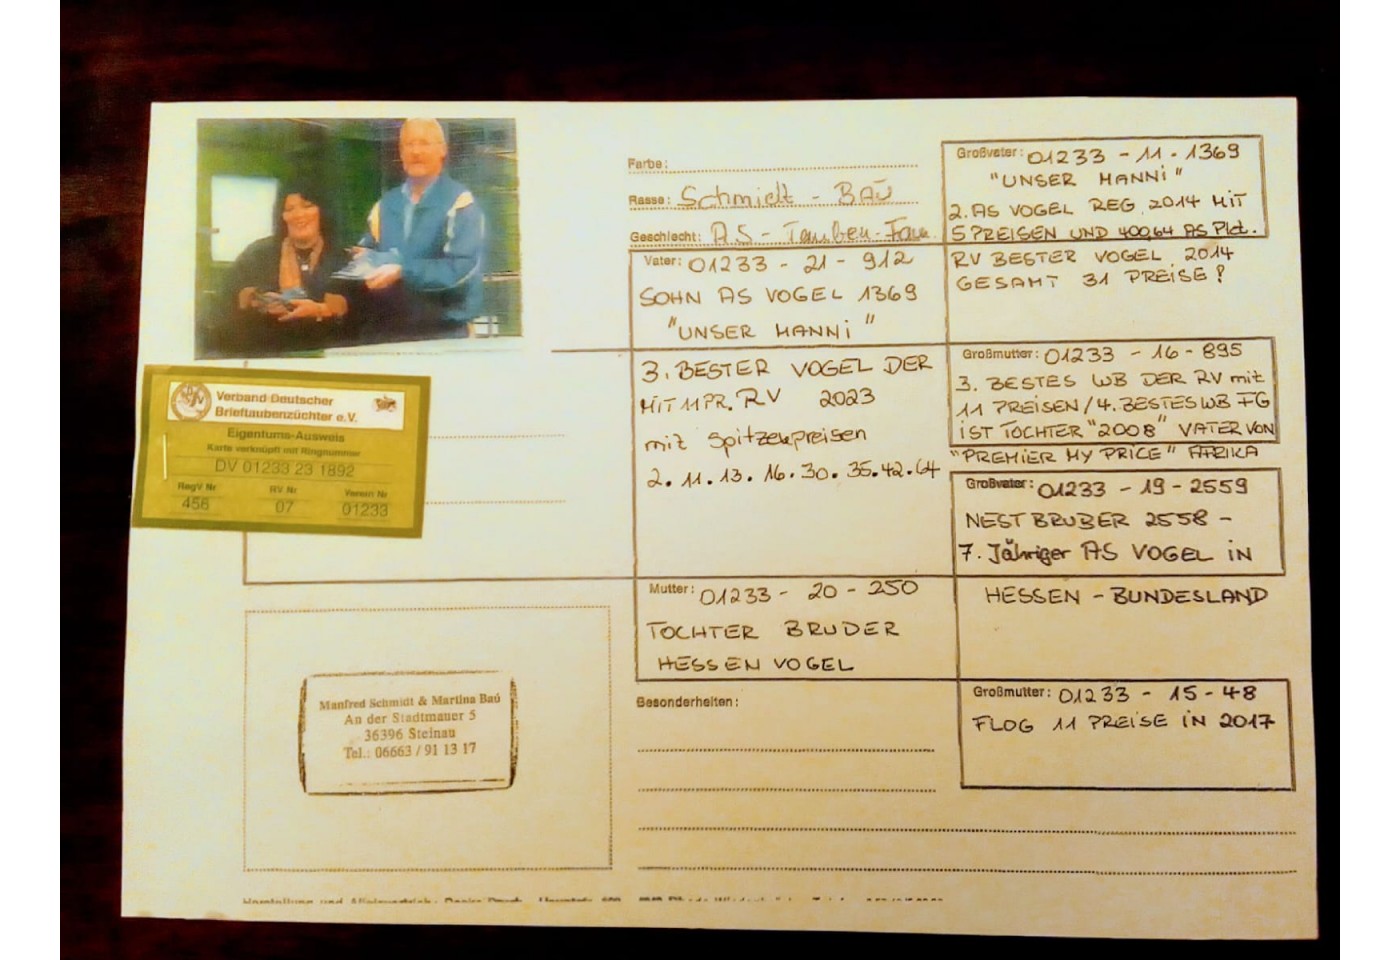 Farbe:
Rasse: Schmidt - BAÚ
Geschlecht: AS - Tauben-Fam.
Vater: 01233 - 21 - 912
SOHN AS VOGEL 1369
"UNSER MANNi"
3. BESTER VOGEL DER
MIT 11 PR. RV 2023
mit Spitzenpreisen
2. 11. 13. 16. 30. 35. 42. 64
Mutter: 01233 - 20 - 250
TOCHTER BRUDER
HESSEN VOGEL
Besonderheiten:
Großvater: 01233 - 11 - 1369
"UNSER MANNi"
2. AS VOGEL REG. 2014 MIT
5 PREISEN UND 400,64 AS Pkt.
RV BESTER VOGEL 2014
GESAMT 31 PREISE!
Großmutter: 01233 - 16 - 895
3. BESTES WB DER RV mit
11 PREISEN / 4. BESTES WB FG
iST TOCHTER "2008" VATER VON
"PREMIER MY PRICE" AFRIKA
Großvater: 01233 - 19 - 2559
NESTBRUBER 2558 -
7. Jähriger AS VOGEL iN
HESSEN - BUNDESLAND
Großmutter: 01233 - 15 - 48
FLOG 11 PREISE iN 2017
Verband Deutscher
Brieftaubenzüchter e.V.
Eigentums-Ausweis
Karte verknüpft mit Ringnummer
DV 01233 23 1892
RegV Nr RV Nr Verein Nr
456 07 01233
Manfred Schmidt & Martina Baú
An der Stadtmauer 5
36396 Steinau
Tel.: 06663 / 91 13 17